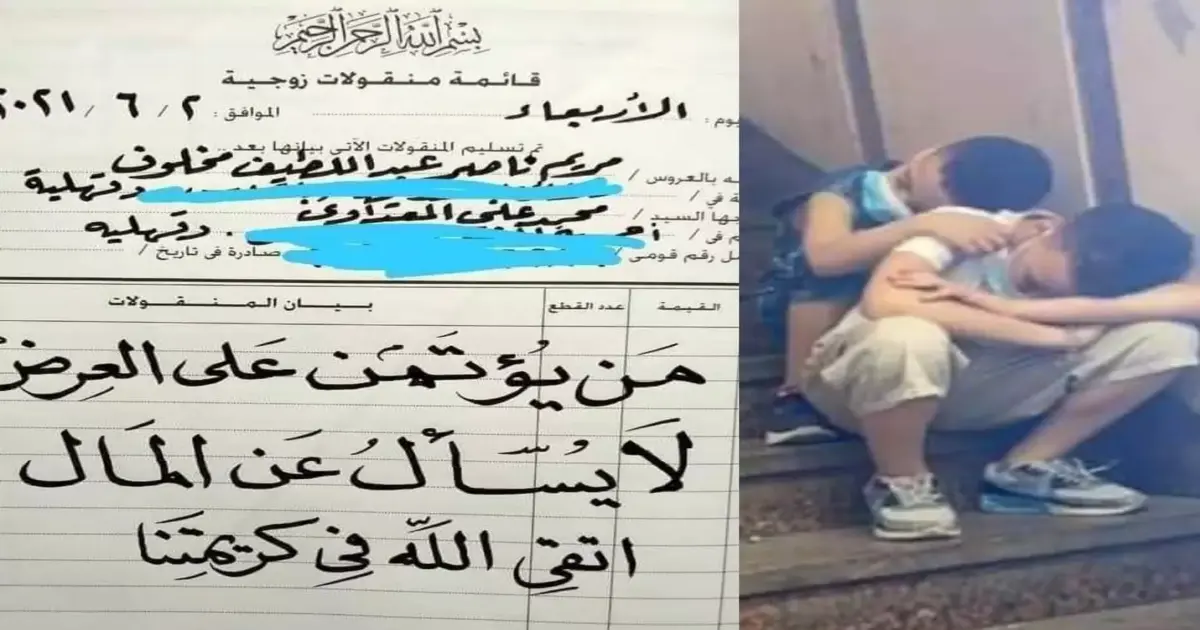 بسم الله الرحمن الرحيم
قائمة منقولات زوجية
يوم: الأربعاء الموافق: ٢ / ٦ / ٢٠٢١
تم تسليم المنقولات الآتى بيانها بعد..
ه بالعروس / مريم ناصر عبد اللطيف مخلوف
ة في / دقهلية
جها السيد / محمد علي المعتداوى
م فى / دقهليه
ل رقم قومى / صادرة فى تاريخ /
القيمة عدد القطع بيان المنقولات
مَن يُؤتَمَن عَلى العِرضِ
لَا يُسْأَلُ عَن المَال
اتقي اللَّه فِي كريمتِنَا